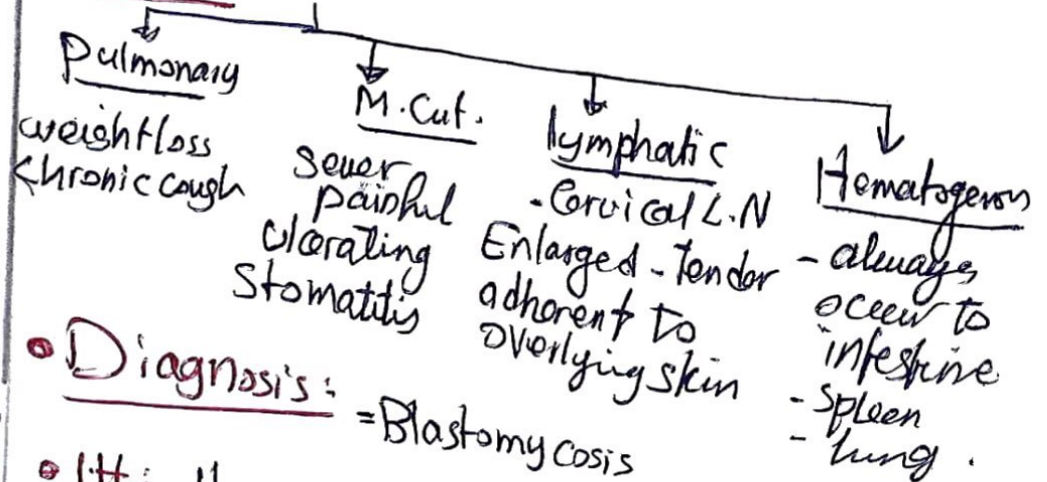 Pulmonary
weightloss
Chronic cough
M.Cut.
Sever
painful
Ulcerating
Stomatitis
lymphatic
- Cervical L.N
Enlarged - Tender
adherent to
overlying skin
Hematogenous
- always
occur to
intestine
- Spleen
- lung.
• Diagnosis:
= Blastomycosis